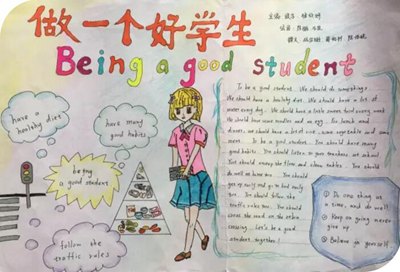 做一个好学生
主编:
Being a good student
To be a good student. We should do somethings
We should have a healthy diet. We should have a lot of
meat every day. We should have a little sweet food every week
We should have some noodles and an egg. For lunch and
dinner. we should have a lot of rice. some vegetable and some
meat. To be a good student. You should have many
good habits. You should listen to your teachers at school
You should change the slow and clean tables. You should
do well at home too. You should
get up early and go to bed early
too. You should follow the
traffic rules too. We should
cross the road on the zebra
crossing. Let's be a good
student. together!
have a
healthy diet
have many
good habits
being
a good student
follow the
traffic rules
① Do one thing at
a time, and do well.
② Keep on going never
give up
③ Believe in yourself